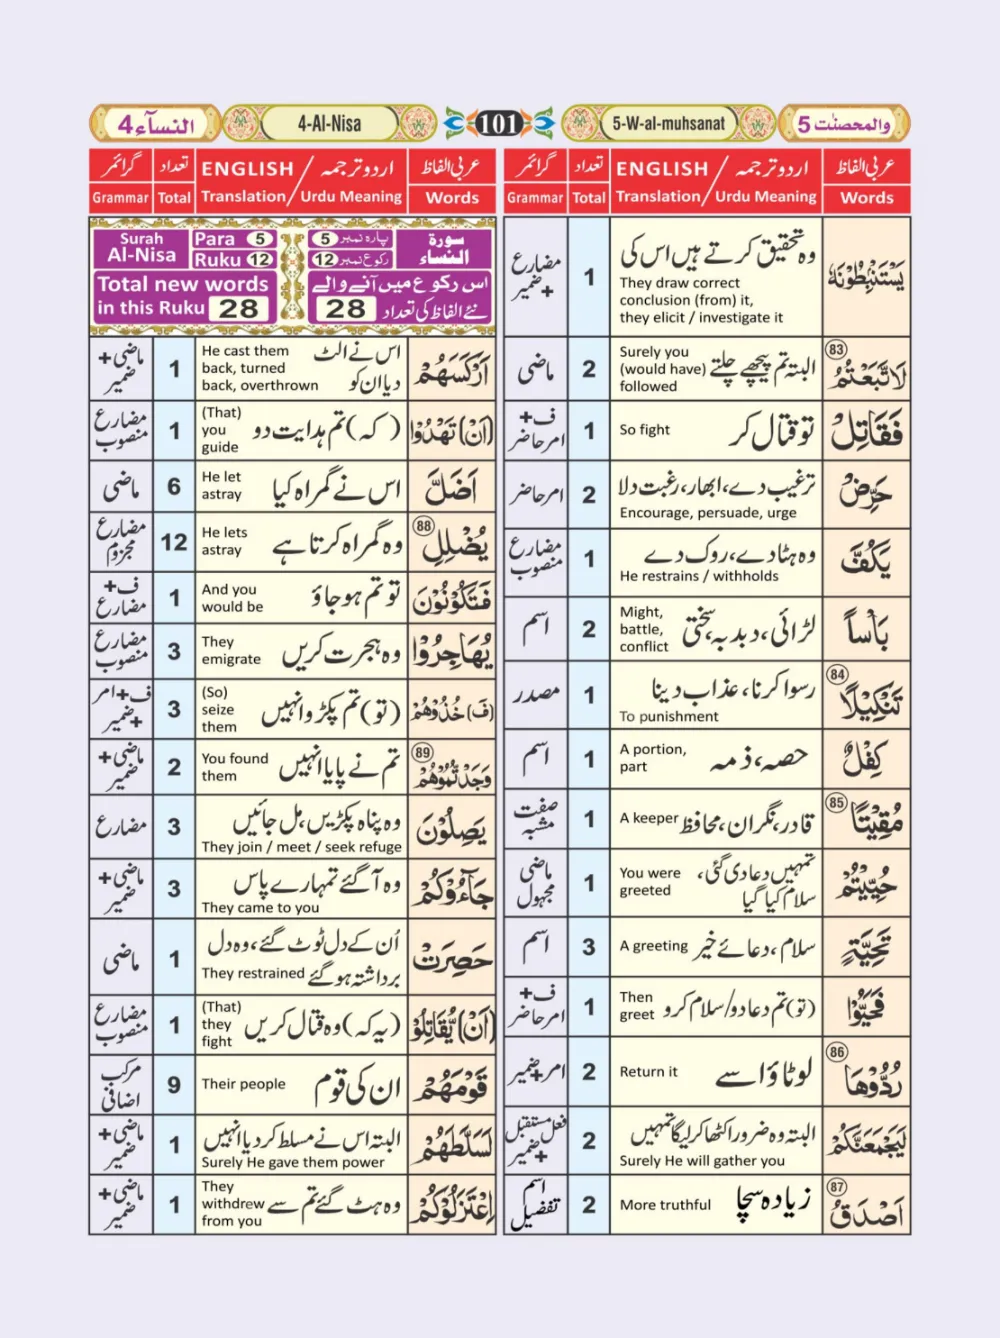 النسآء 4
4-Al-Nisa
101
5-W-al-muhsanat
والمحصنٰت 5
گرائمر
تعداد
ENGLISH / اردو ترجمہ
عربی الفاظ
Grammar
Total
Translation / Urdu Meaning
Words
مضارع + ضمیر
1
وہ تحقیق کرتے ہیں اس کی
They draw correct
conclusion (from) it,
they elicit / investigate it
يَسْتَنْۢبِطُوْنَهٗ
ماضی
2
Surely you
(would have)
followed
البتہ تم پیچھے چلتے
83
لَاتَّبَعْتُمُ
ف + امر حاضر
1
So fight
تو قتال کر
فَقَاتِلْ
امر حاضر
2
ترغیب دے، ابھار، رغبت دلا
Encourage, persuade, urge
حَرِّضْ
مضارع منصوب
1
وہ ہٹا دے، روک دے
He restrains / withholds
يَكُفَّ
اسم
2
Might,
battle,
conflict
لڑائی، دبدبہ، سختی
بَاْساً
مصدر
1
رسوا کرنا، عذاب دینا
To punishment
84
تَنْكِيْلًا
اسم
1
A portion,
part
حصہ، ذمہ
كِفْلٌ
صفت مشبہ
1
A keeper
قادر، نگران، محافظ
85
مُقِيْتًا
ماضی مجہول
1
You were
greeted
تمہیں دعا دی گئی،
سلام کیا گیا
حُيِّيْتُمْ
اسم
3
A greeting
سلام، دعائے خیر
تَحِيَّةٍ
ف + امر حاضر
1
Then
greet
(تو) تم دعا دو/ سلام کرو
فَحَيُّوْا
امر + ضمیر
2
Return it
لوٹاؤ اسے
86
رُدُّوْهَا
فعل مستقبل + ضمیر
2
البتہ وہ ضرور اکٹھا کرلیگا تمہیں
Surely He will gather you
لَيَجْمَعَنَّكُمْ
اسم تفضیل
2
More truthful
زیادہ سچا
87
اَصْدَقُ
گرائمر
تعداد
ENGLISH / اردو ترجمہ
عربی الفاظ
Grammar
Total
Translation / Urdu Meaning
Words
Surah
Al-Nisa
Para 5
Ruku 12
پارہ نمبر 5
رکوع نمبر 12
سورة
النساء
Total new words
in this Ruku 28
اس رکوع میں آنے والے
نئے الفاظ کی تعداد 28
ماضی + ضمیر
1
He cast them
back, turned
back, overthrown
اس نے الٹ
دیا ان کو
اَرْكَسَهُمْ
مضارع منصوب
1
(That)
you
guide
(کہ) تم ہدایت دو
(اَنْ) تَهْدُوْا
ماضی
6
He let
astray
اس نے گمراہ کیا
اَضَلَّ
مضارع مجزوم
12
He lets
astray
وہ گمراہ کرتا ہے
88
يُضْلِلِ
ف + مضارع
1
And you
would be
تو تم ہو جاؤ
فَتَكُوْنُوْنَ
مضارع منصوب
3
They
emigrate
وہ ہجرت کریں
يُهَاجِرُوْا
ف + امر + ضمیر
3
(So)
seize
them
(تو) تم پکڑو انہیں
(فَ) خُذُوْهُمْ
ماضی + ضمیر
2
You found
them
تم نے پایا انہیں
89
وَجَدْتُّمُوْهُمْ
مضارع
3
وہ پناہ پکڑیں، مل جائیں
They join / meet / seek refuge
يَصِلُوْنَ
ماضی + ضمیر
3
وہ آگئے تمہارے پاس
They came to you
جَآءُوْكُمْ
ماضی
1
اُن کے دل ٹوٹ گئے، وہ دل
They restrained برداشتہ ہوگئے
حَصِرَتْ
مضارع منصوب
1
(That)
they
fight
(یہ کہ) وہ قتال کریں
(اَنْ) يُّقَاتِلُوْ
مرکب اضافی
9
Their people
ان کی قوم
قَوْمَهُمْ
ماضی + ضمیر
1
البتہ اس نے مسلط کر دیا انہیں
Surely He gave them power
لَسَلَّطَهُمْ
ماضی + ضمیر
1
They
withdrew
from you
وہ ہٹ گئے تم سے
اِعْتَزَلُوْكُمْ